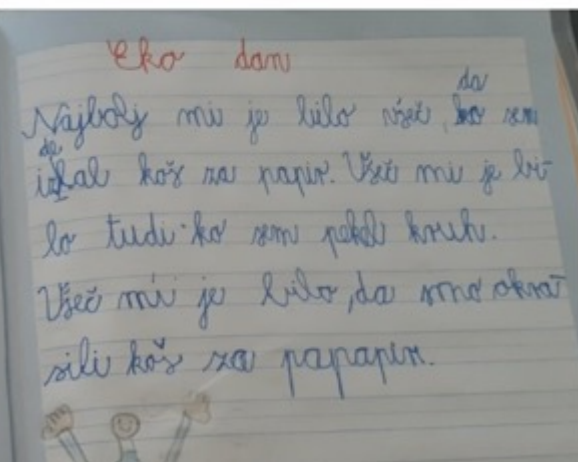 Eko dan
Najbolj mi je bilo všeč, da sem
delal koš za papir. Všeč mi je bi-
lo tudi ko sem pekel kruh.
Všeč mi je bilo, da smo okra-
sili koš za papapir.